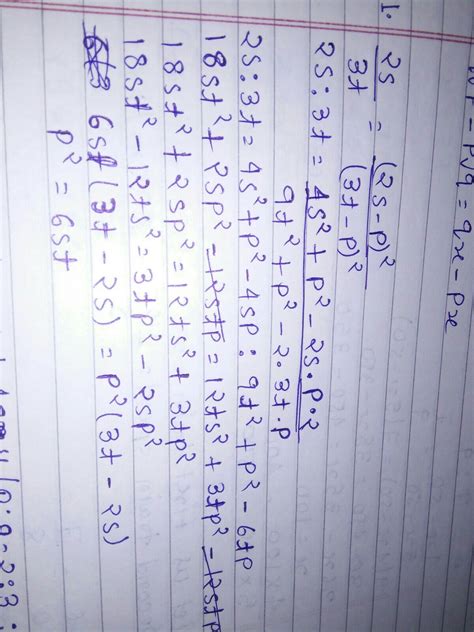 = qx - px
1. 2s/3t = (2s-p)²/(3t-p)²
2s:3t = 4s²+p²-2s·p·2/9t²+p²-2·3t·p
2s:3t = 4s²+p²-4sp : 9t²+p²-6tp
18st²+2sp²-12stp = 12ts²+3tp²-12stp
18st²+2sp² = 12ts²+3tp²
18st²-12ts² = 3tp²-2sp²
6st(3t-2s) = p²(3t-2s)
p² = 6st